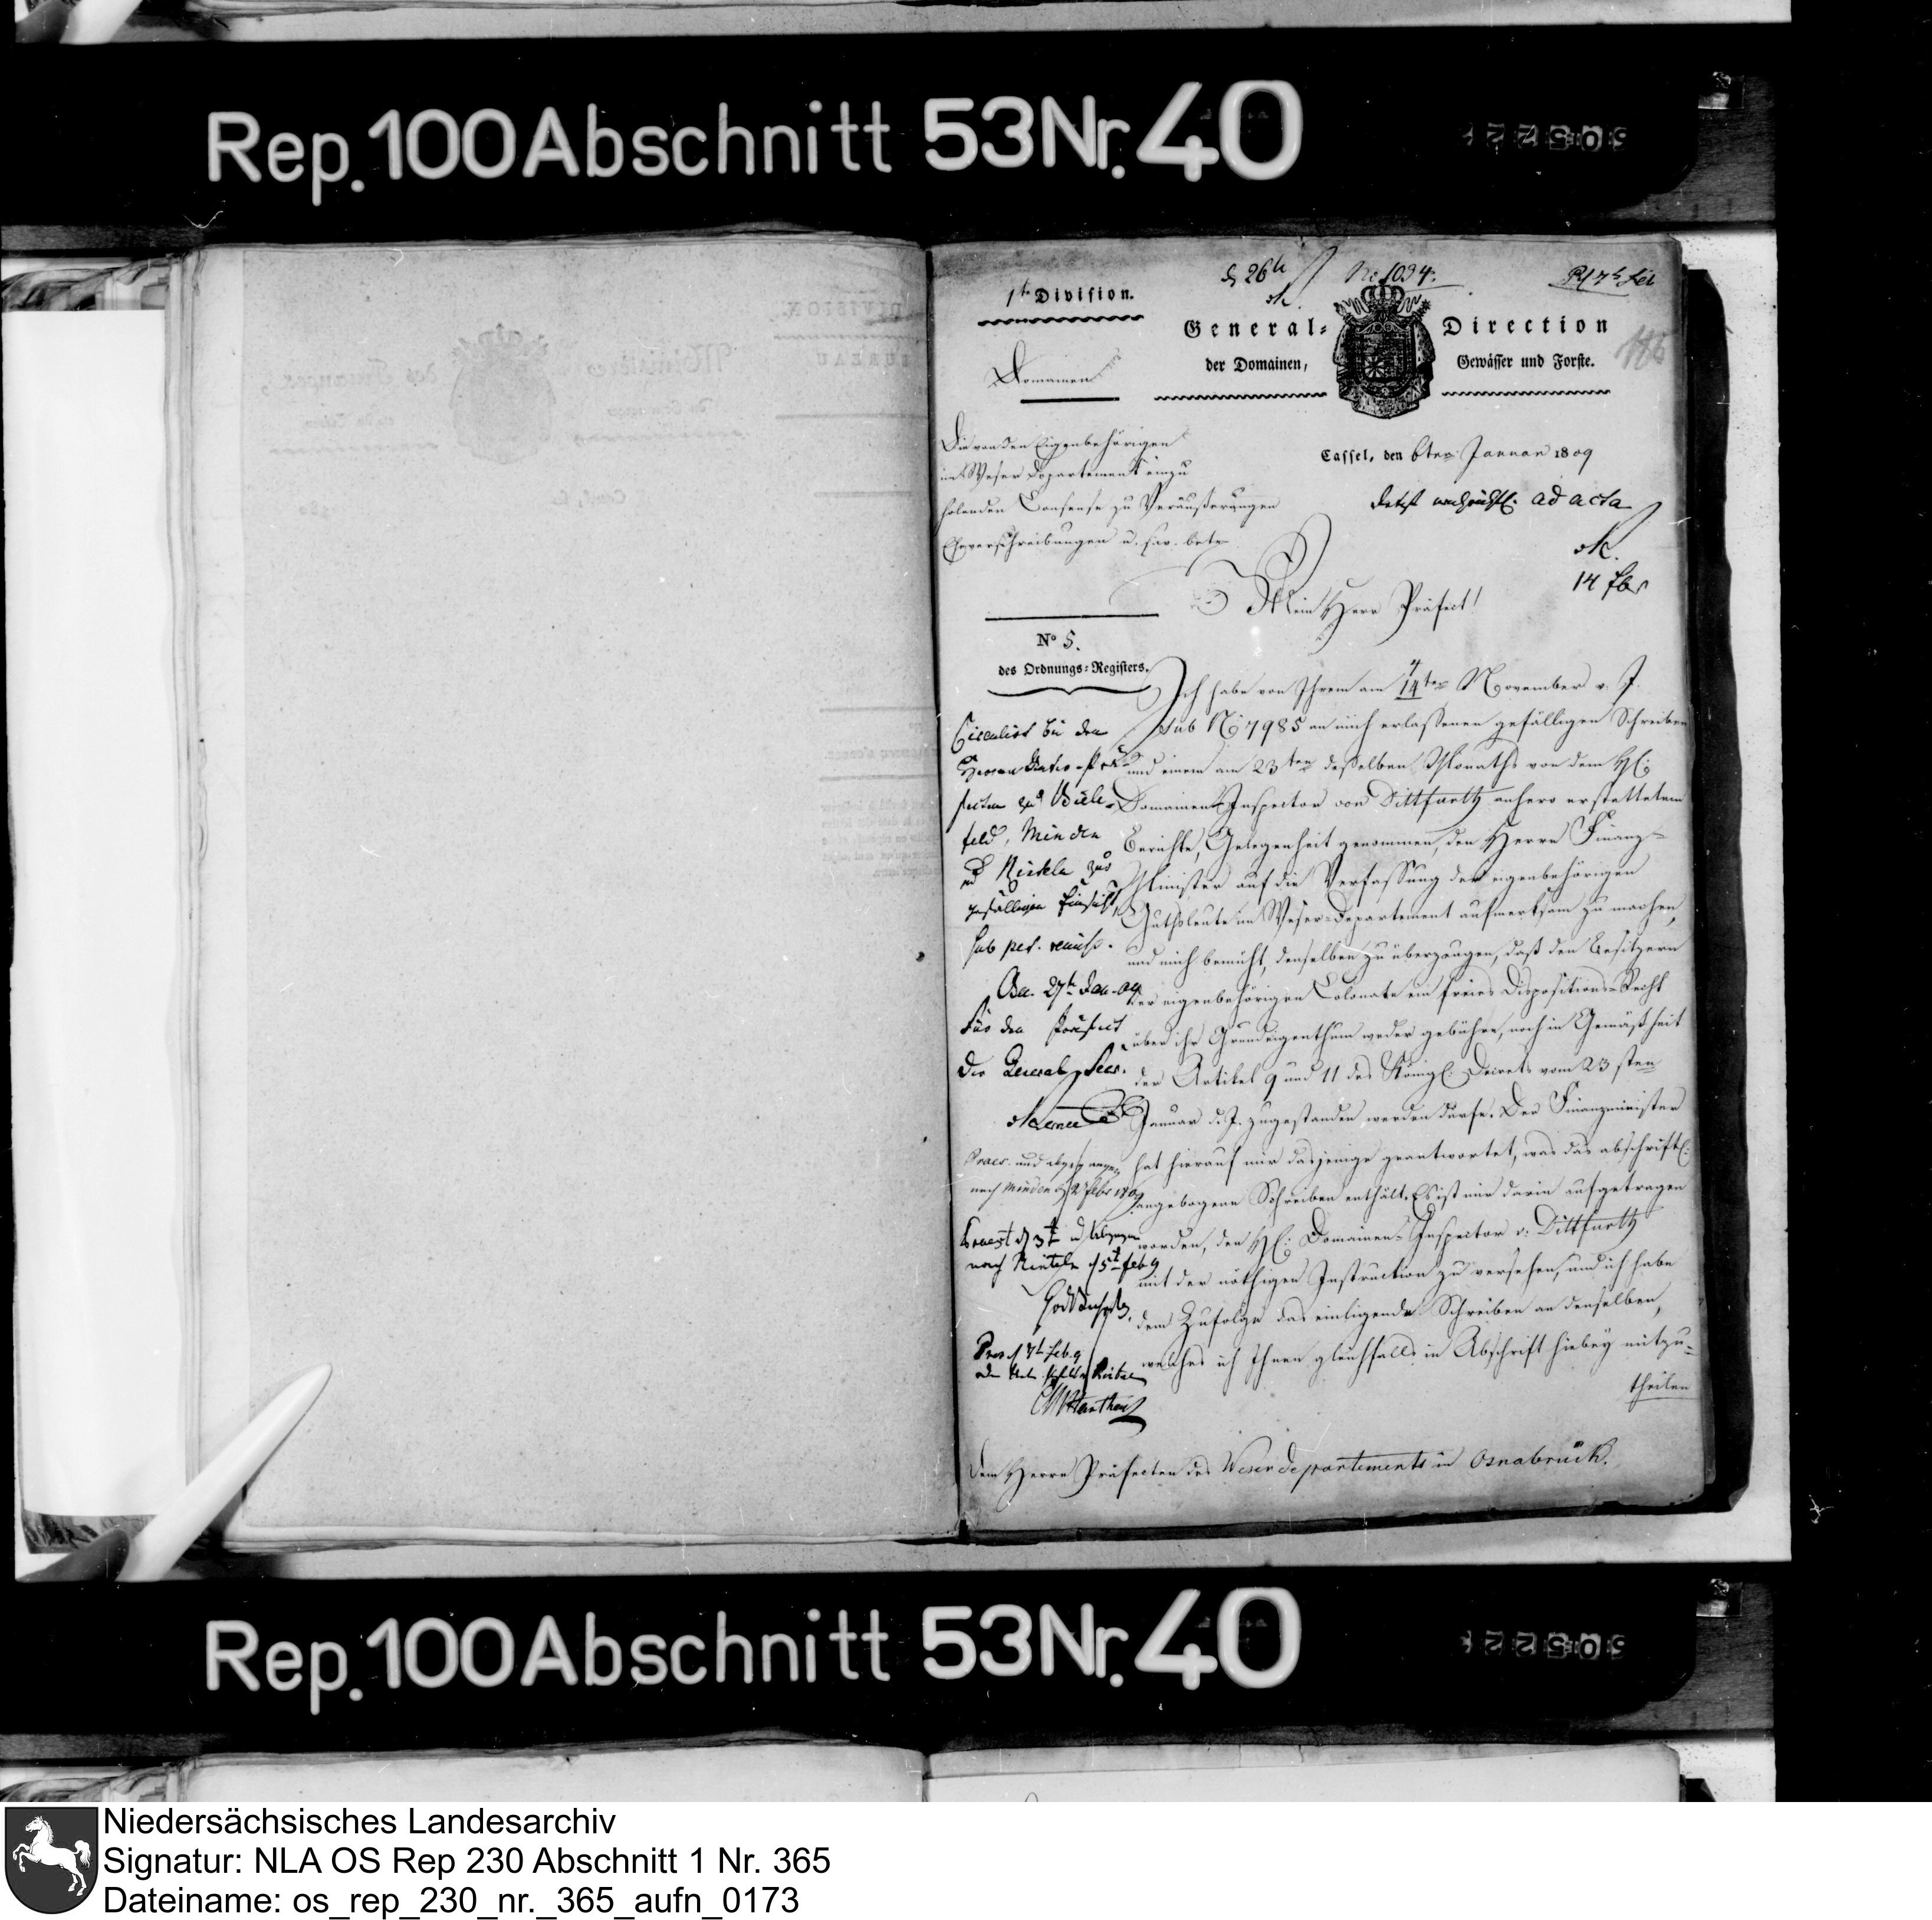 Rep. 100 Abschnitt 53 Nr. 40
50522
1te Division.
d 26ten
No 1034.
General-Direction
der Domainen, Gewässer und Forste.
Domainen
Die von den Eigenbehörigen
im Weser Departement einzu
holenden Consense zu Veräußerungen
Eheverschreibungen u. s. w. betr.
Cassel, den 6ten Januar 1809
ad acta
14 Febr
Mein Herr Präfect!
No 5.
des Ordnungs-Registers.
Ich habe von Ihrem am 14ten November v. J.
sub No 7985 an mich erlaßenen gefälligen Schreiben
und einem am 23ten deßelben Monaths von dem H.
Domainen-Inspector von Dittfurth anhero erstatteten
Berichte, Gelegenheit genommen, den Herrn Finanz-
Minister auf die Verfassung der eigenbehörigen
Guthsleute im Weser-Departement aufmerksam zu machen,
und mich bemüht, denselben zu überzeugen, daß den Besitzern
der eigenbehörigen Colonate ein freies Dispositions-Recht
über ihr Grundeigenthum weder gebühre, noch in Gemäßheit
der Artikel 9 und 11 des Königl. Decrets vom 23sten
Januar d. J. zugestanden werden dürfe. Der Finanzminister
hat hierauf mir dasjenige geantwortet, was das abschriftl.
angebogene Schreiben enthält. Es ist mir darin aufgetragen
worden, den H. Domainen-Inspector v. Dittfurth
mit der nöthigen Instruction zu versehen, und ich habe
dem Zufolge das einliegende Schreiben an denselben,
welches ich Ihnen gleichfalls in Abschrift hiebey mitzu-
theilen
Circulirt bei den
Herren Unter-Prä-
fecten zu Biele-
feld, Minden
und Rinteln zur
gefälligen Einsicht
sub pet. remiss.
Osn. 27t Jan. 09
Für den Präfect
Der General-Secr.
Praes. und abgegangen
nach Minden d 2 Febr 1809
Praest d 3t u abgegangen
nach Rinteln d 5t feb 9
Pres. d 7t feb. 9
Dem Herrn Präfecten des Weserdepartements in Osnabrück.
Rep. 100 Abschnitt 53 Nr. 40
50522
Niedersächsisches Landesarchiv
Signatur: NLA OS Rep 230 Abschnitt 1 Nr. 365
Dateiname: os_rep_230_nr._365_aufn_0173